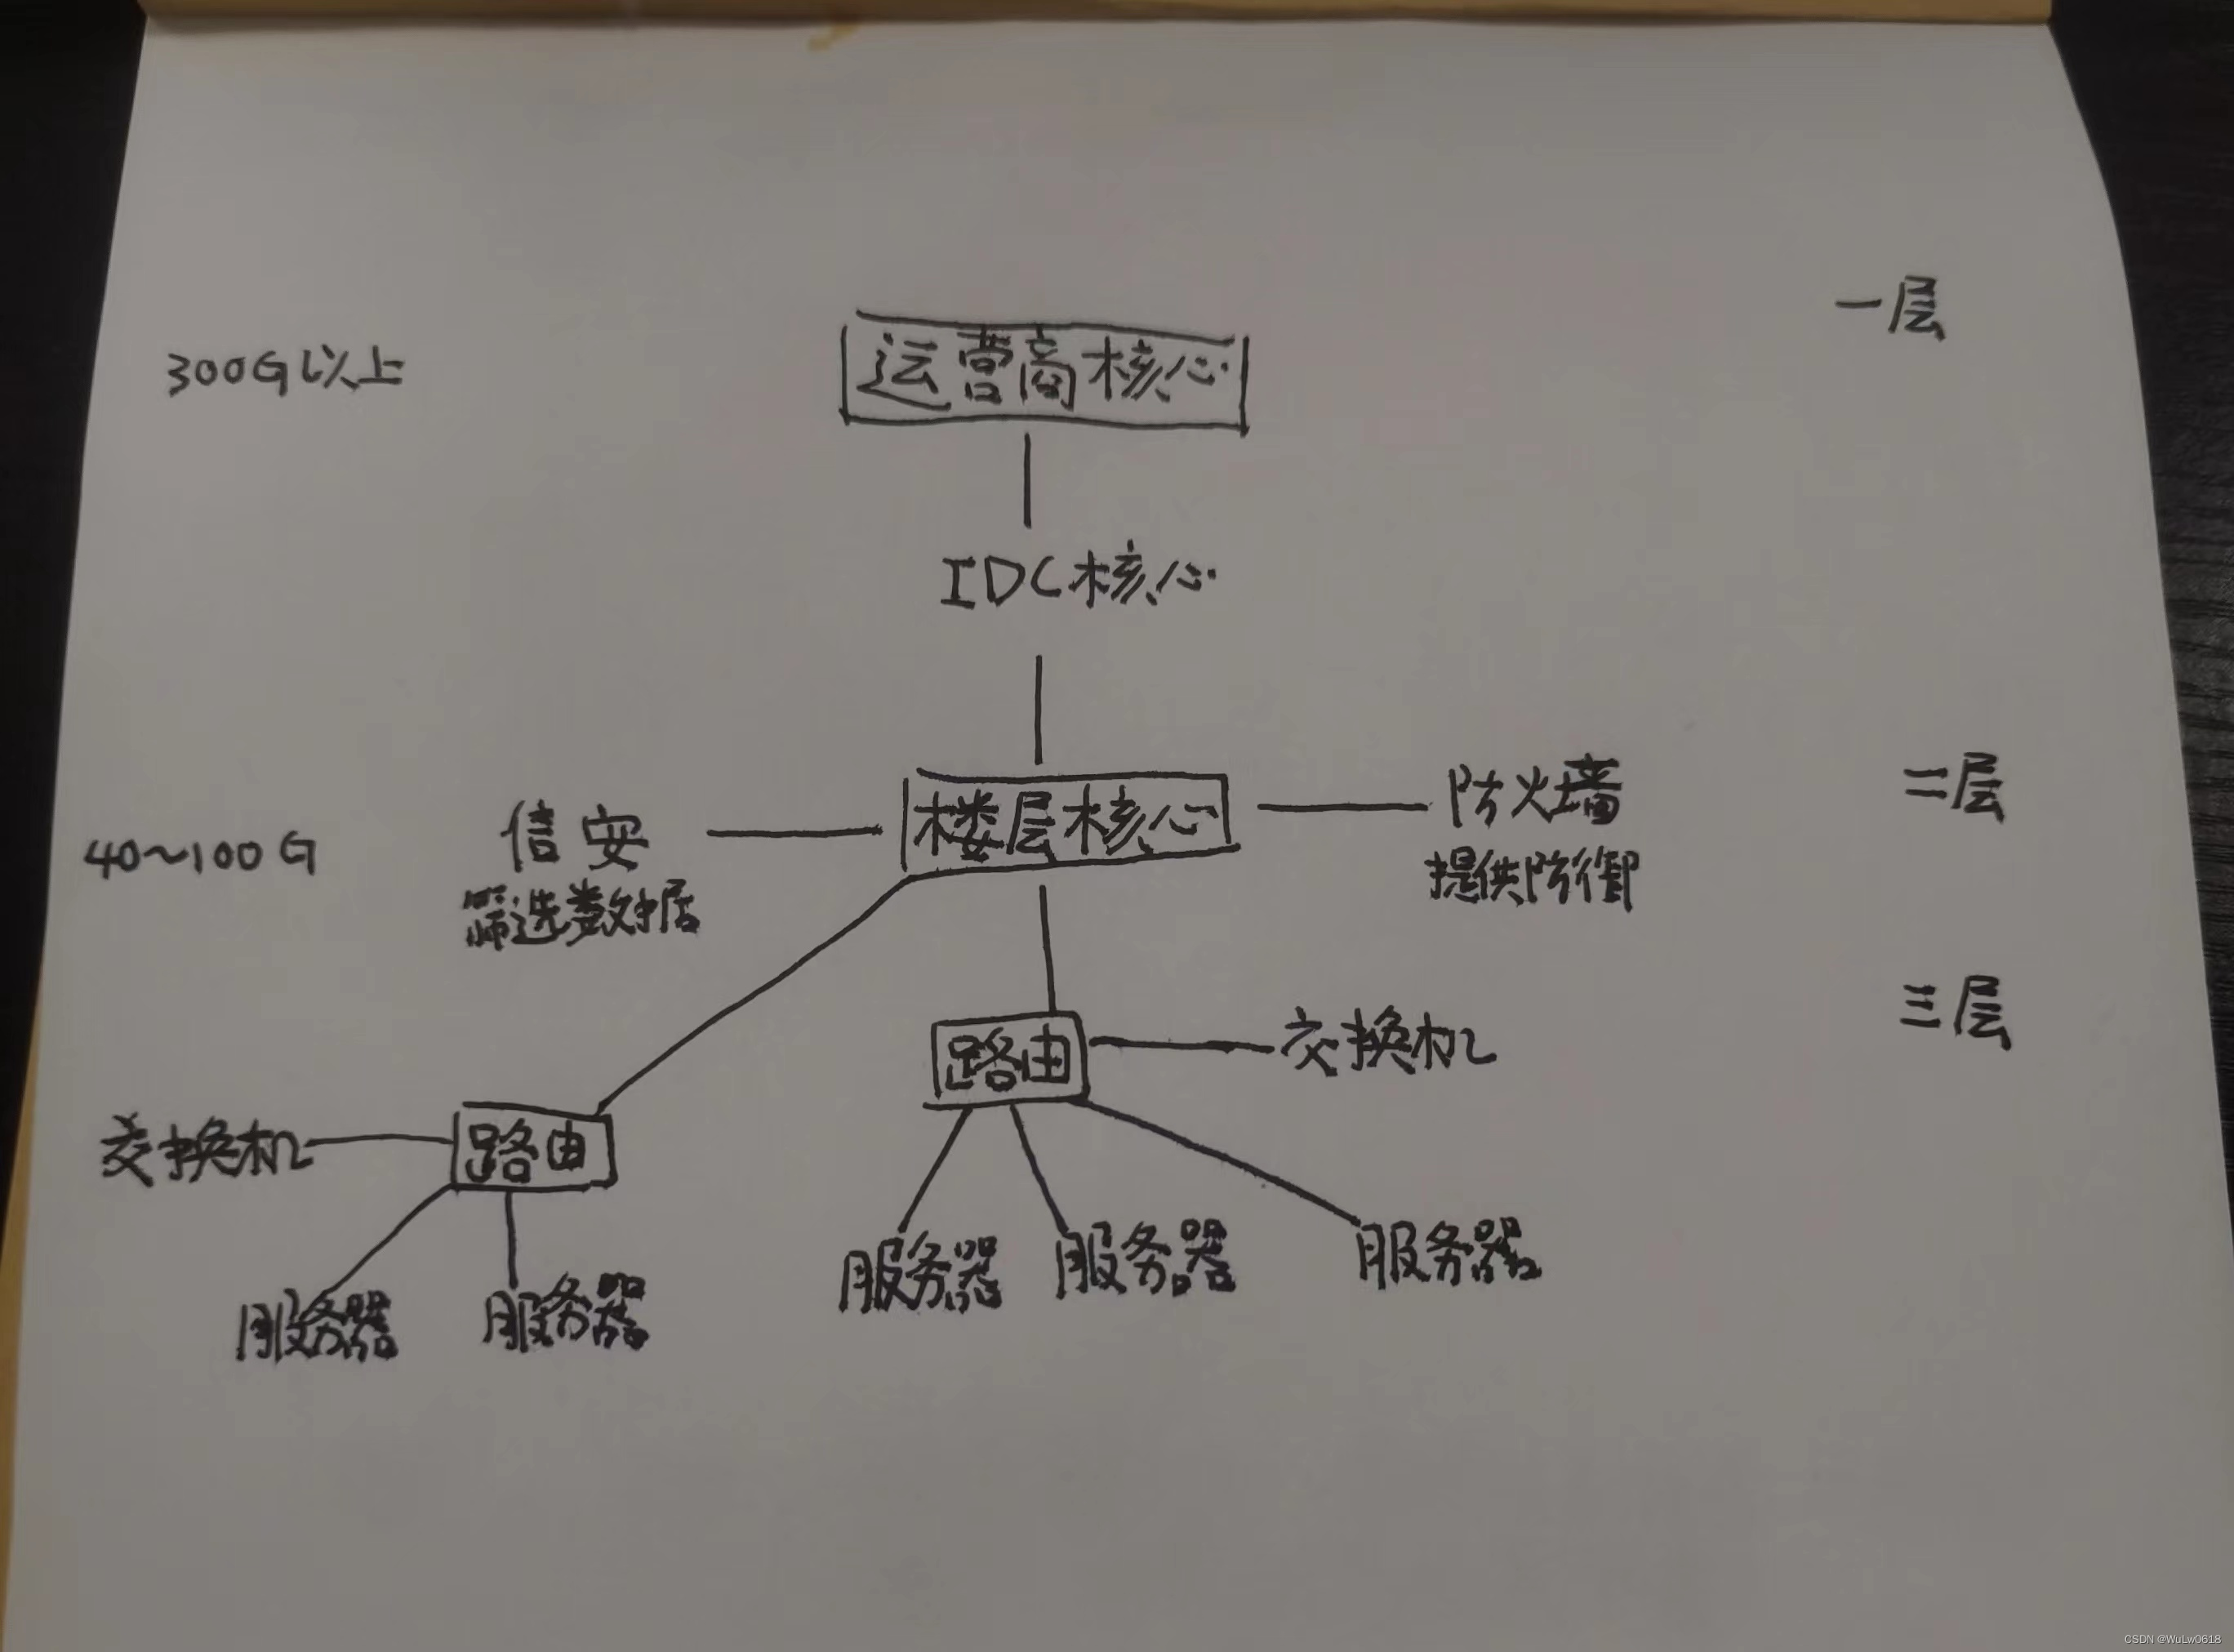 一层
300G以上
运营商核心
IDC核心
信安
筛选数据
楼层核心
防火墙
提供防御
二层
40~100G
三层
路由
交换机
交换机
路由
服务器
服务器
服务器
服务器
服务器
CSDN @WuLw0618